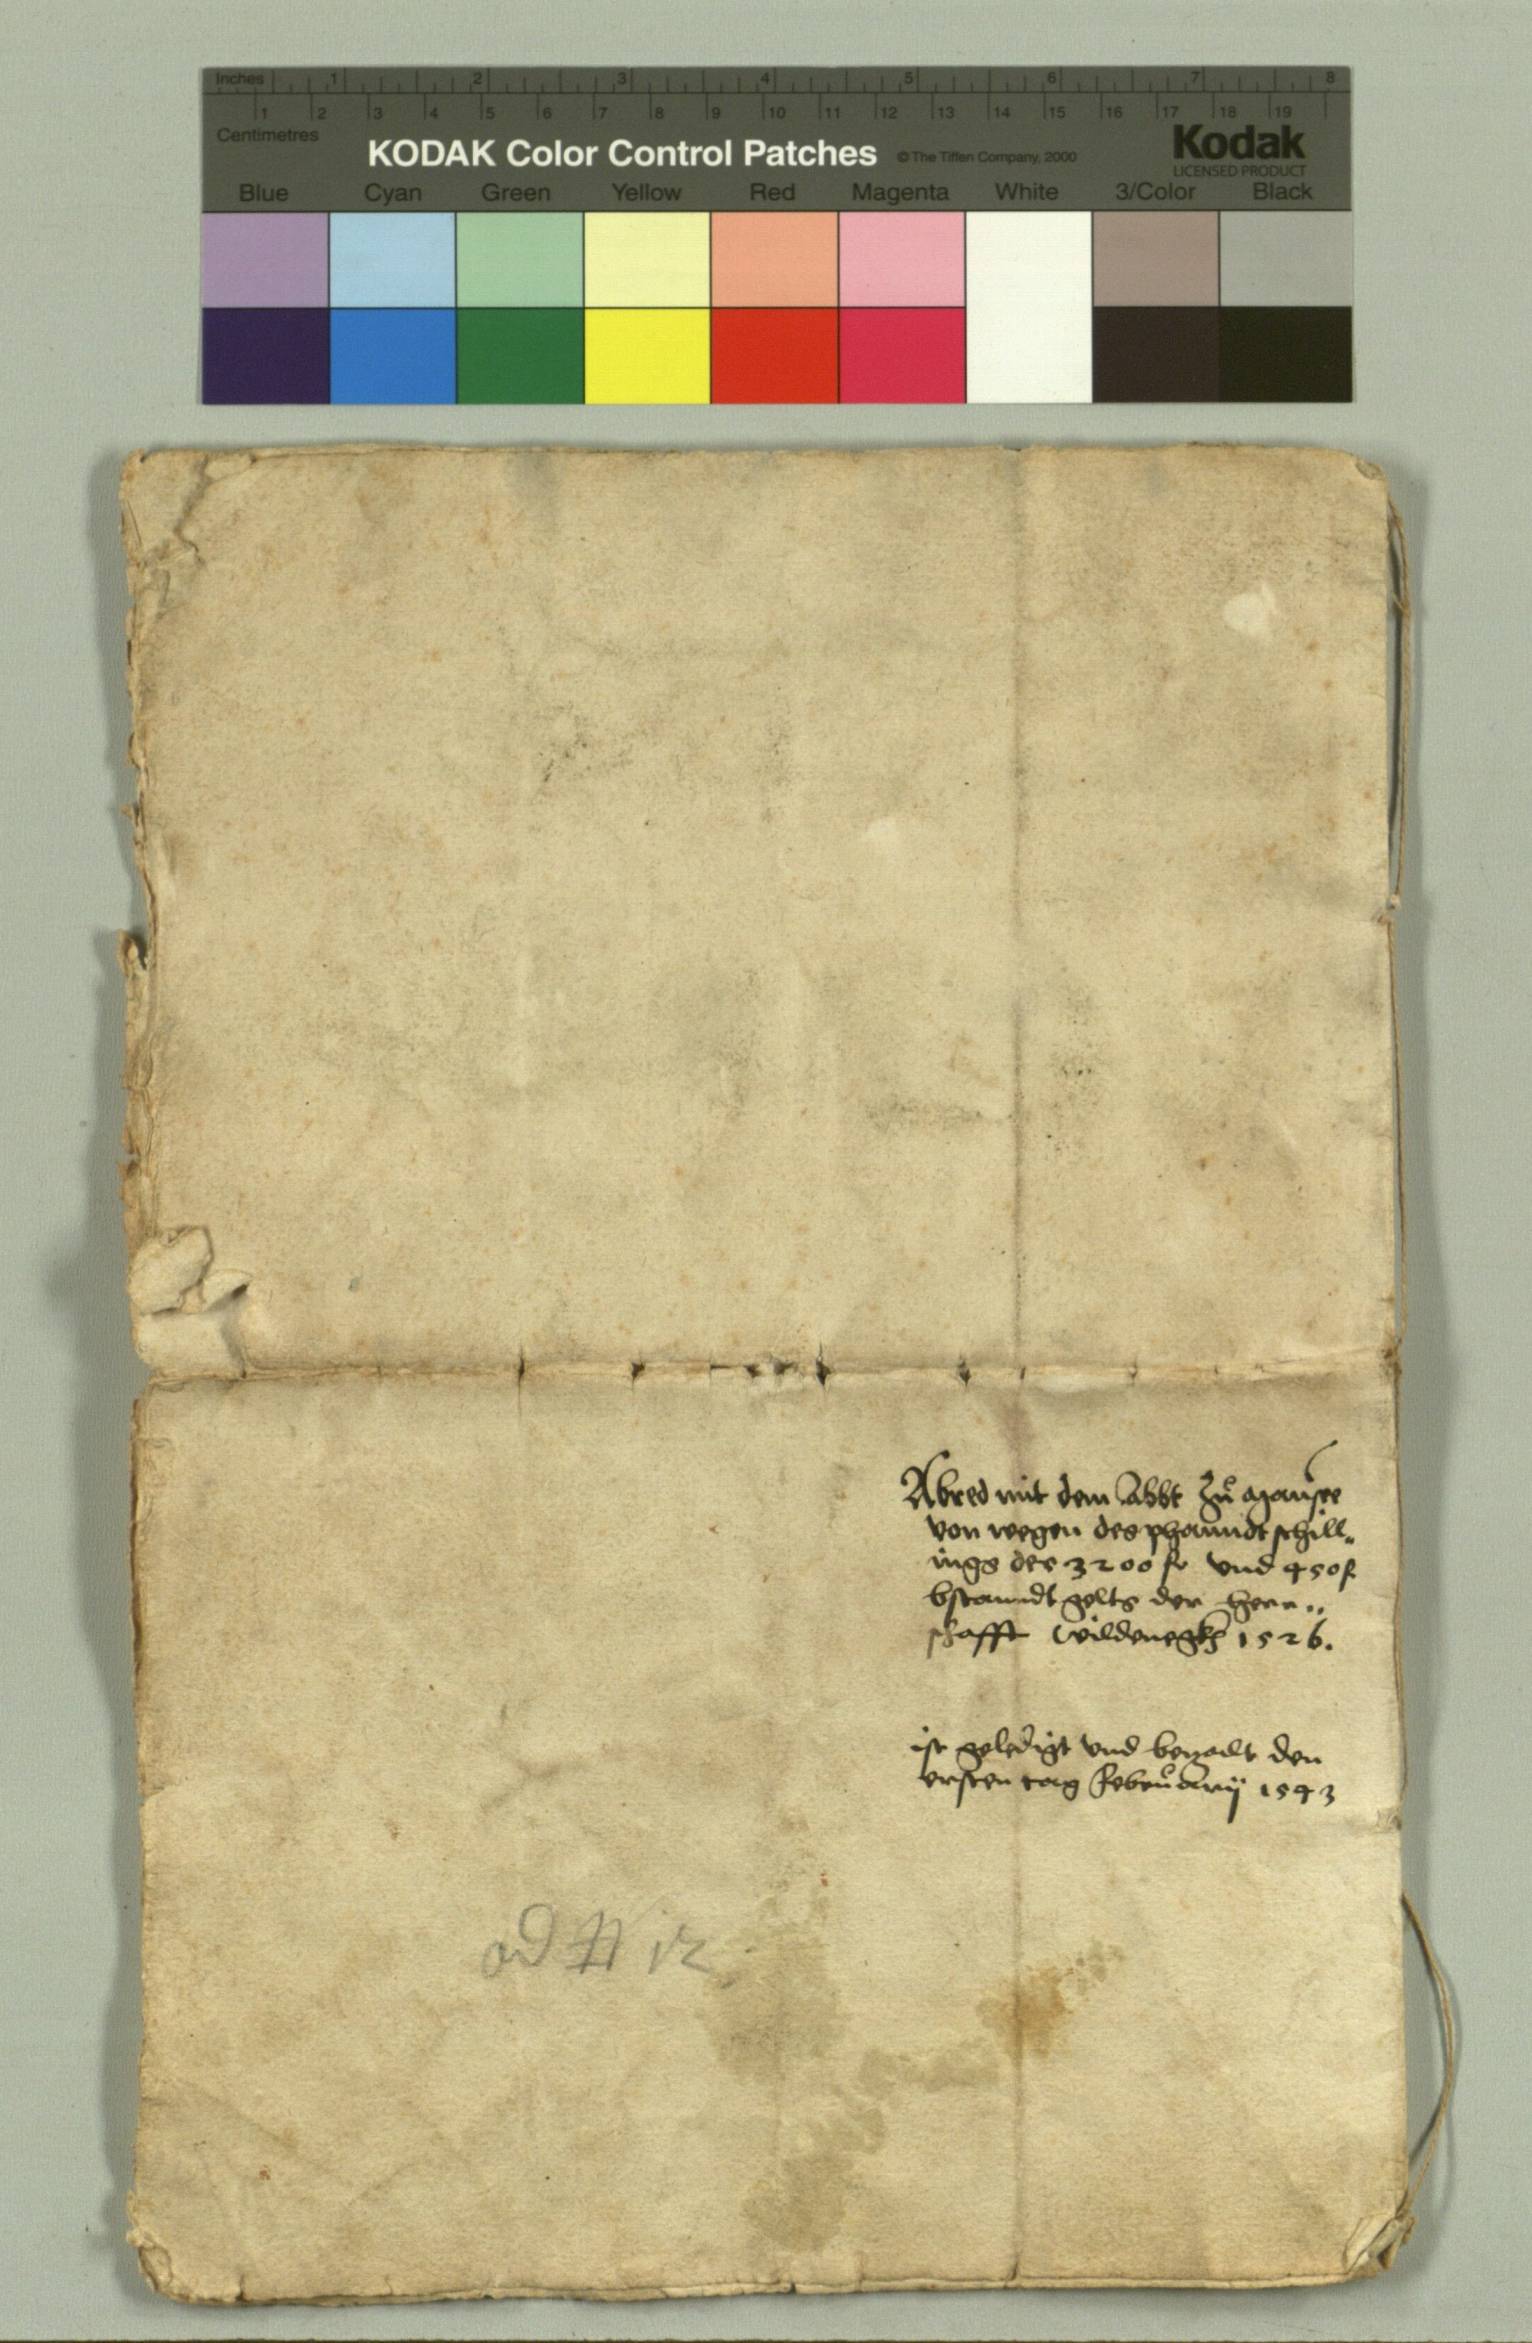 Inches 1 2 3 4 5 6 7 8
1 2 3 4 5 6 7 8 9 10 11 12 13 14 15 16 17 18 19
Centimetres
KODAK Color Control Patches © The Tiffen Company, 2000 Kodak
LICENSED PRODUCT
Blue Cyan Green Yellow Red Magenta White 3/Color Black
Abred mit dem Abbt Zů Mansee
von wegen des phanndtschill„
ings der 3200 fl und 450 fl
bstanndtgelts der Herr„
schafft Wildenegkh 1526.
ist geledigt vnd bezallt den
ersten tag Februarij 1543
ad # 12